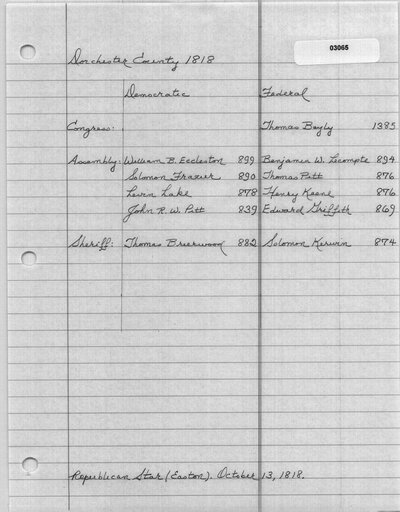 03065
Dorchester County 1818
Democratic Federal
Congress: Thomas Bayly 1385
Assembly: William B. Eccleston 899 Benjamin W. Lecompte 894
Solomon Frazier 890 Thomas Pitt 876
Levin Lake 878 Henry Keene 876
John R. W. Pitt 839 Edward Griffith 869
Sheriff: Thomas Brierwood 882 Solomon Kirwin 874
Republican Star (Easton). October 13, 1818.